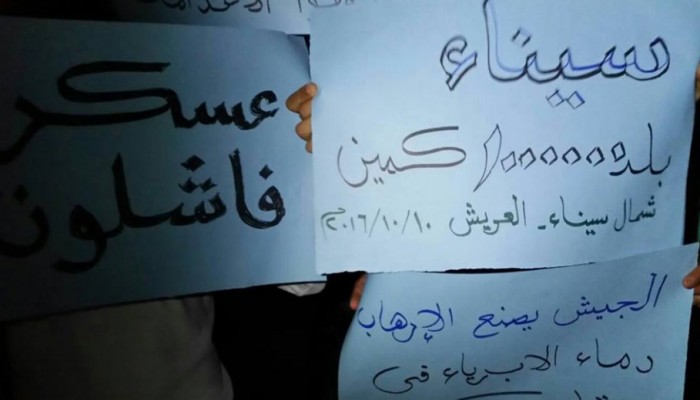 عسكر
فاشلون
سيناء
بلد ١٠٠٠٠٠٠ كمين
شمال سيناء - العريش ٢٠١٦/١٠/١٠م
الجيش يصنع الإرهاب
دماء الابرياء فى